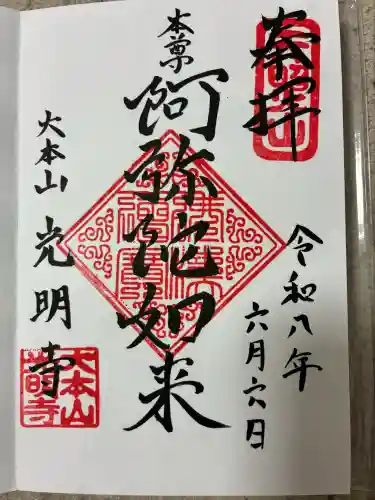 奉拝
令和八年
六月六日
本尊
阿弥陀如来
大本山
光明寺
大本山
光明寺